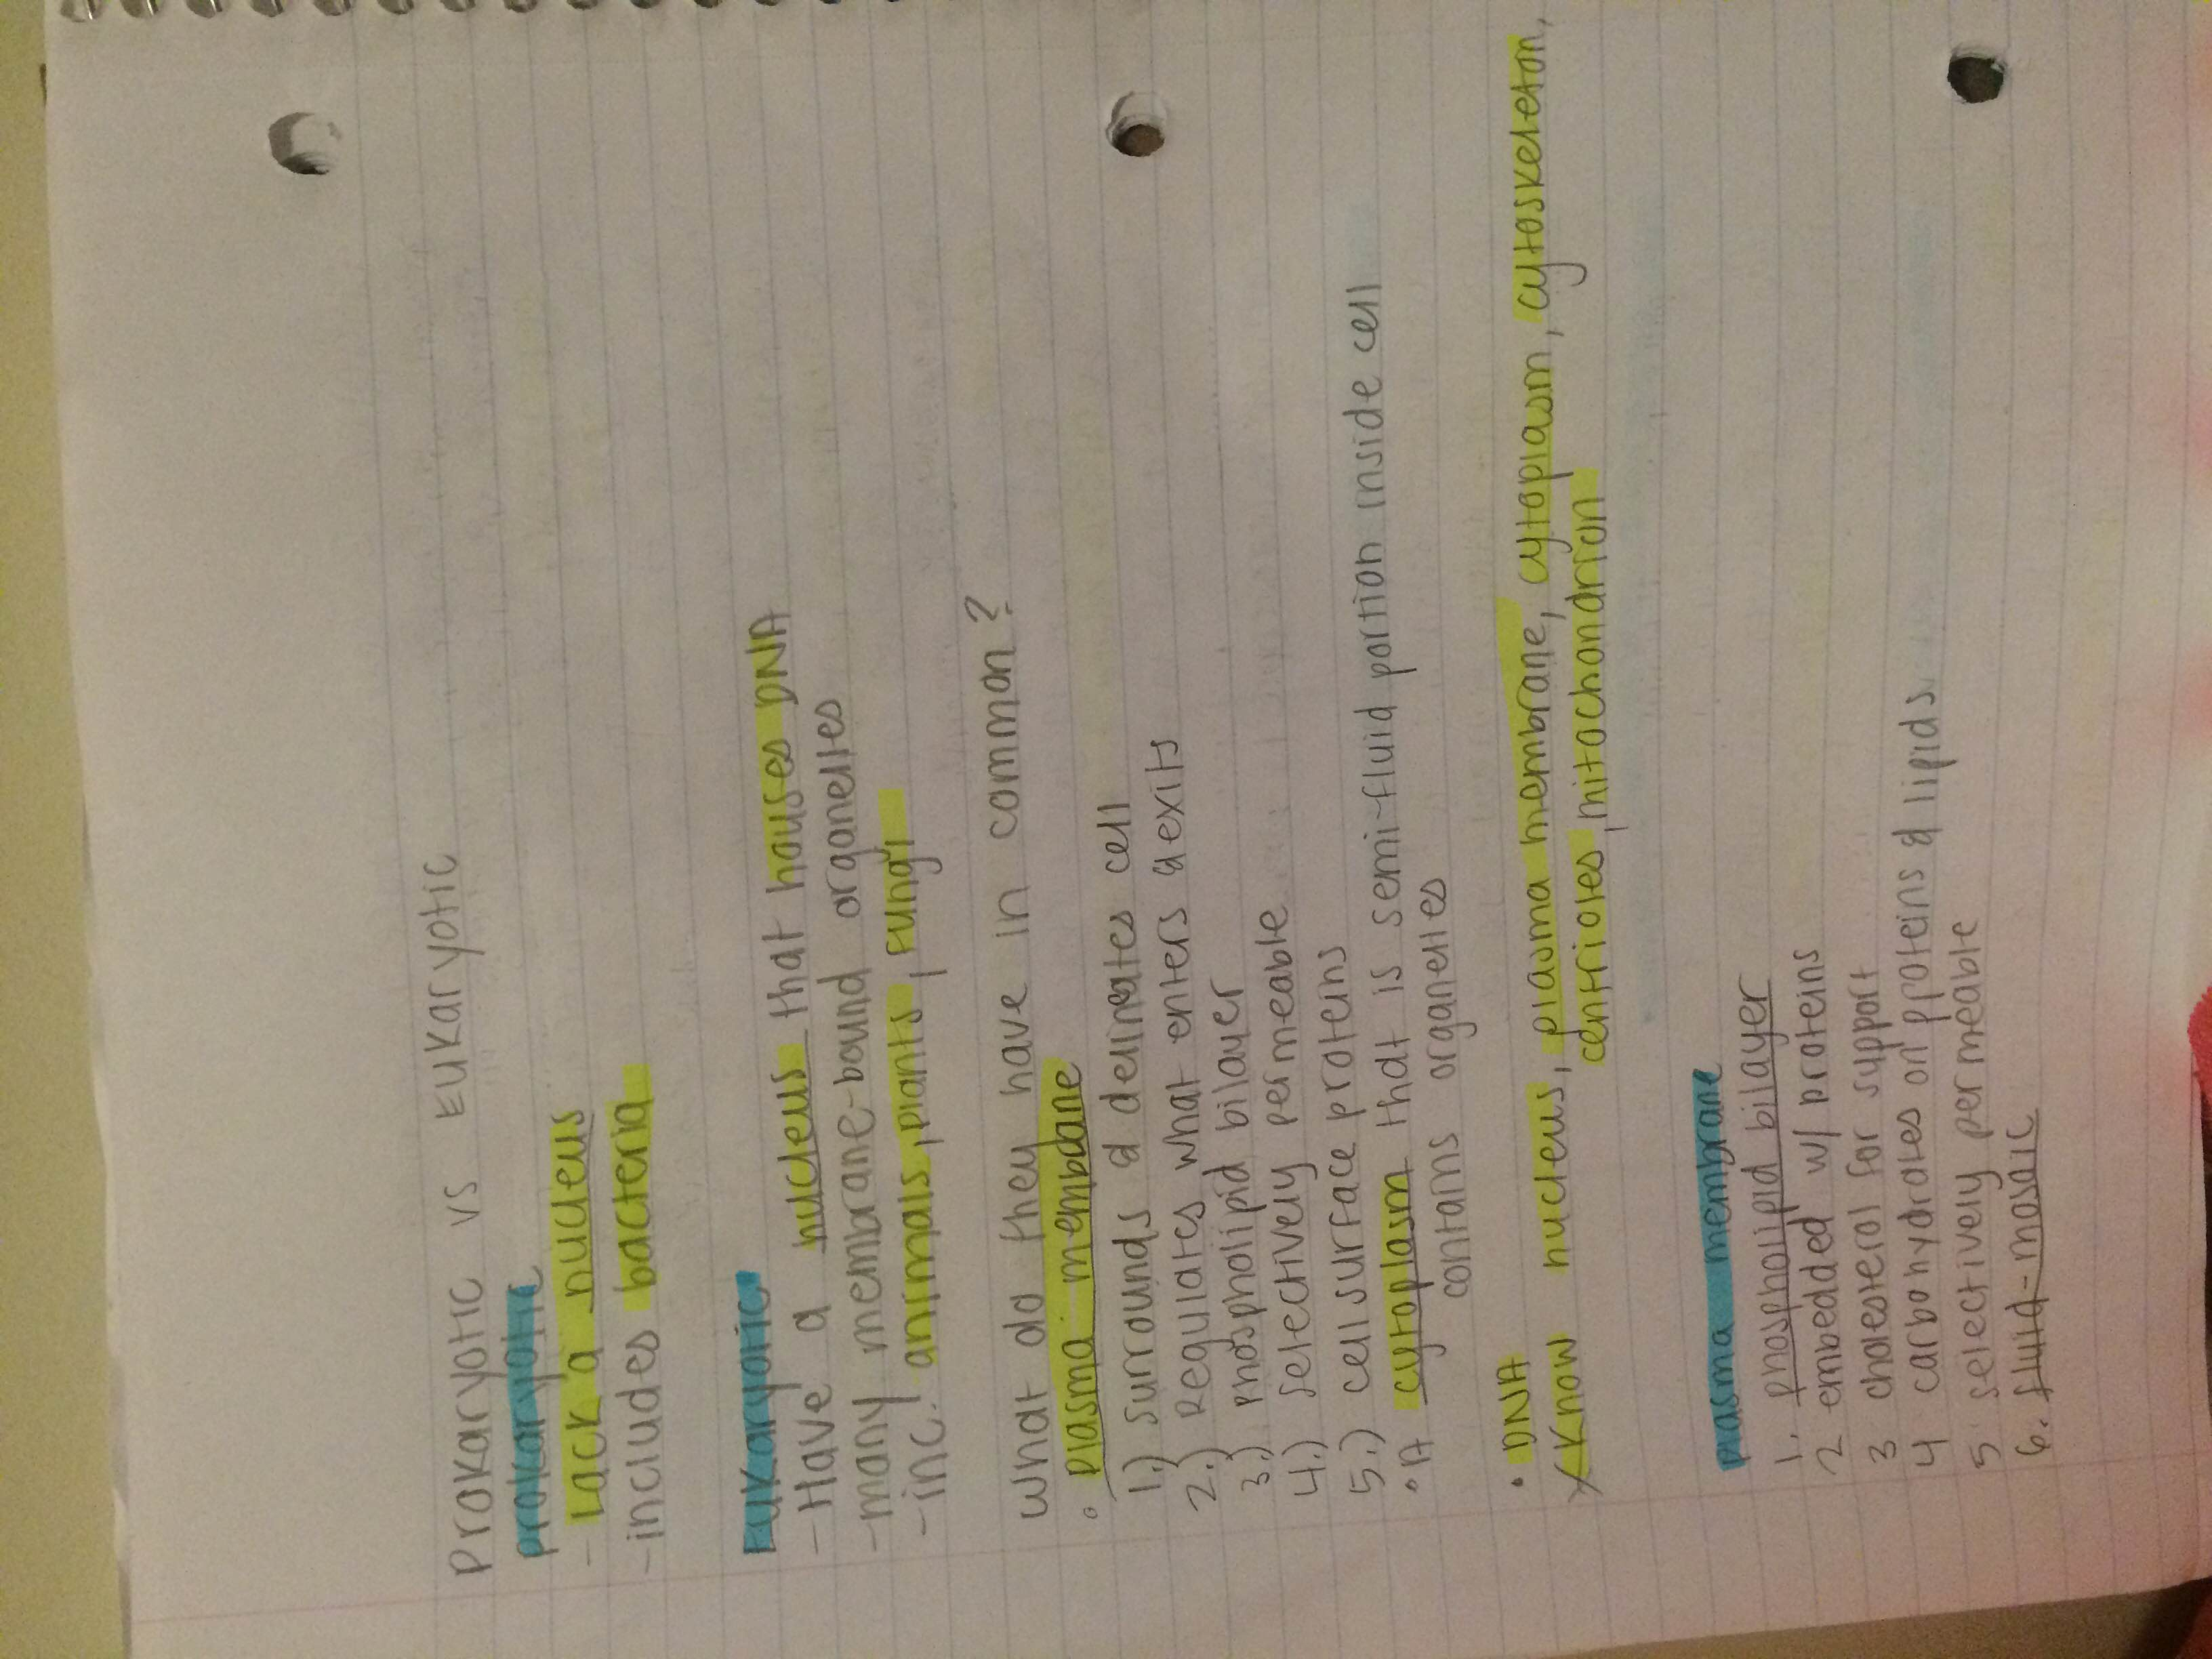 Prokaryotic vs Eukaryotic
prokaryotic
- Lack a nucleus
- includes bacteria
Eukaryotic
- Have a nucleus that houses DNA
- many membrane-bound organelles
- inc. animals, plants, fungi
What do they have in common?
• Plasma membdane
1.) surrounds & delineates cell
2.) Regulates what enters & exits
3.) Phospholipid bilayer
4.) selectively permeable
5.) cell surface proteins
• A cytoplasm that is semi-fluid portion inside cell
contains organelles
• DNA
* Know nucleus, plasma membrane, cytoplasm, cytoskeleton,
centrioles, mitochondrion
plasma membrane
1. phospholipid bilayer
2 embedded w/ proteins
3 cholesterol for support
4 carbohydrates on proteins & lipids
5 selectively permeable
6. fluid-mosaic